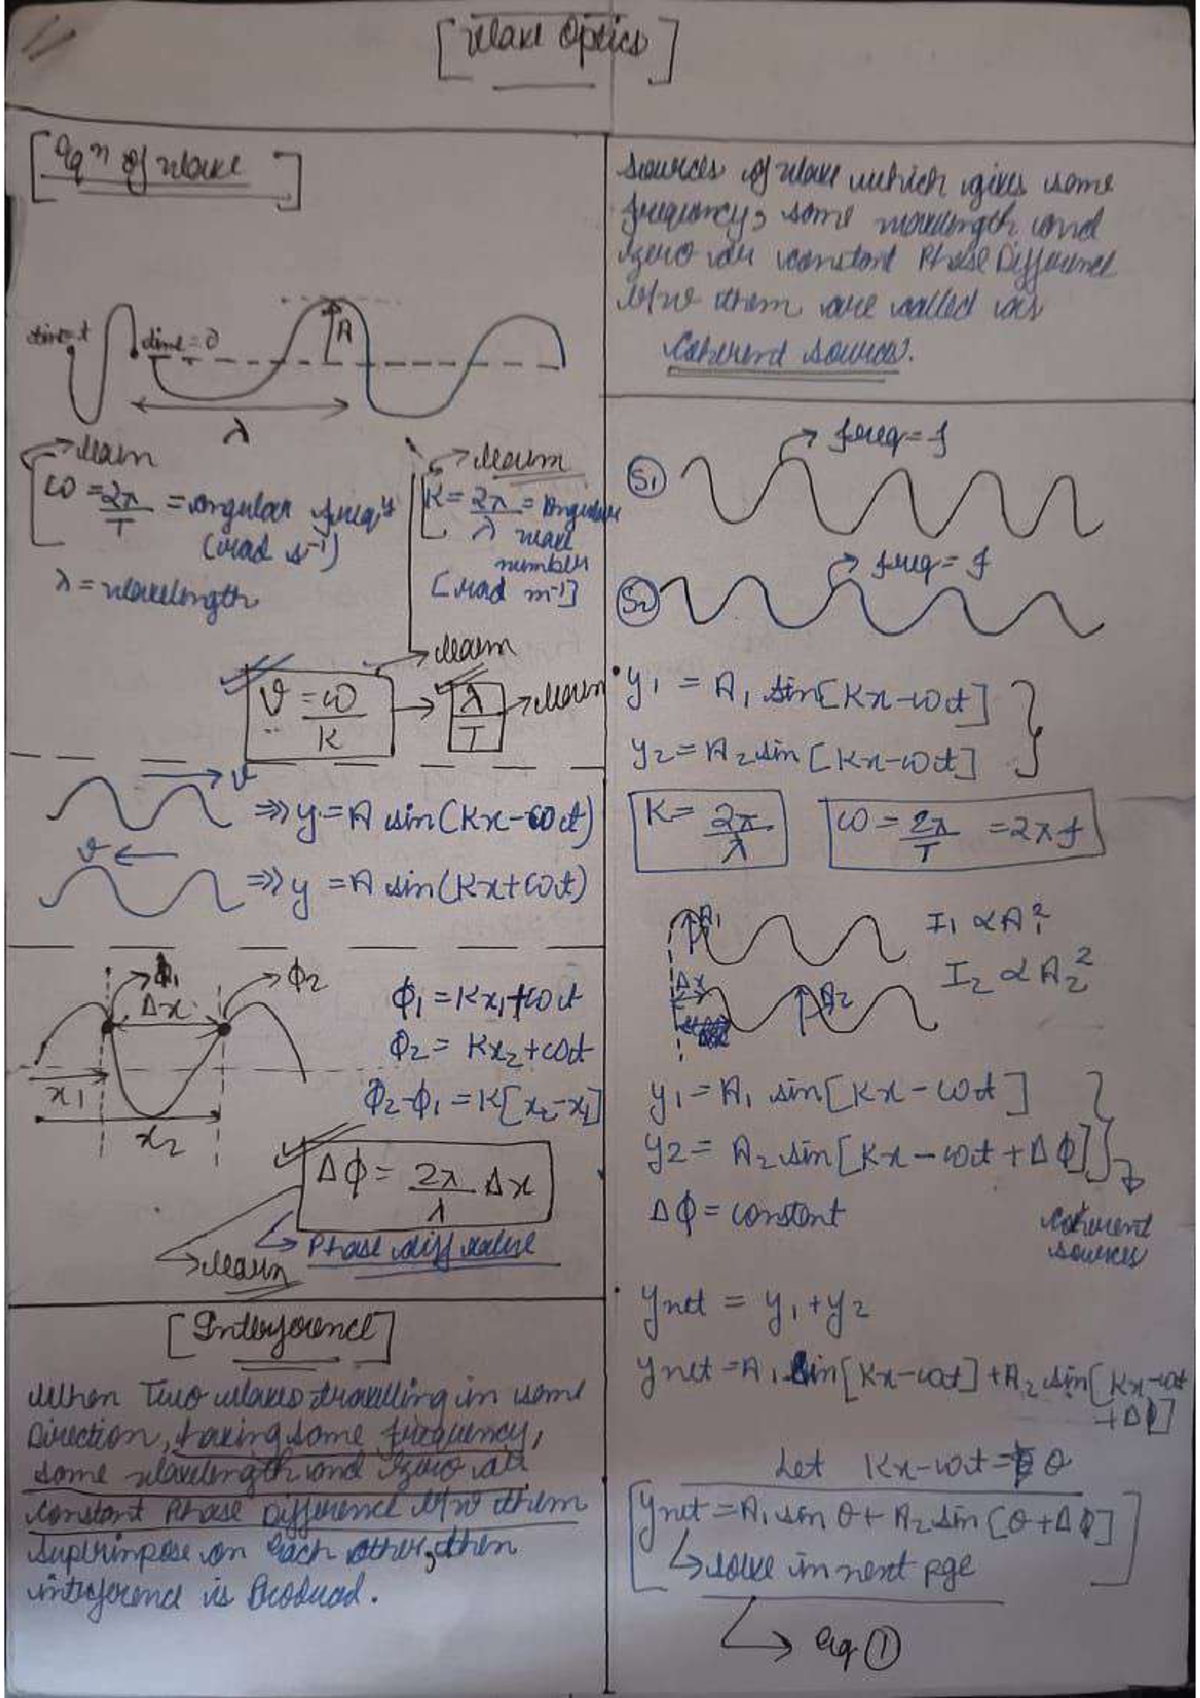 [Wave Optics]
[Eqn of wave]
time=t
time=0
A
λ
→ learn
ω = 2π/T = angular freqy
(rad s⁻¹)
λ = wavelength
→ learn
K = 2π/λ = Angular
wave
number
[rad m⁻¹]
→ learn
v = ω/K → λ/T → learn
v
⇒ y = A sin(Kx-ωt)
v
⇒ y = A sin(Kx+ωt)
ϕ1
ϕ2
Δx
x1
x2
ϕ1 = Kx1+ωt
ϕ2 = Kx2+ωt
ϕ2-ϕ1 = K[x2-x1]
Δϕ = 2π/λ Δx
→ Phase diff value
→ learn
[Interference]
When Two waves travelling in same
Direction, having same frequency,
same wavelength and zero or
constant Phase Difference b/w them
Superimpose on each other, then
interference is Produced.
Sources of wave which gives same
frequency, same wavelength and
zero or constant Phase Difference
b/w them are called as
Coherend sources.
S1
freq = f
S2
freq = f
y1 = A1 sin[Kx-ωt]
y2 = A2 sin[Kx-ωt]
K = 2π/λ
ω = 2π/T = 2πf
A1
I1 ∝ A1²
Δx
A2
I2 ∝ A2²
y1 = A1 sin[Kx-ωt]
y2 = A2 sin[Kx-ωt+Δϕ]
Δϕ = constant
Coherend
sources
ynet = y1+y2
ynet = A1 sin[Kx-ωt]+A2 sin[Kx-ωt
+Δϕ]
Let Kx-ωt = θ
ynet = A1 sin θ + A2 sin[θ+Δϕ]
→ solve in next pge
→ eq ①